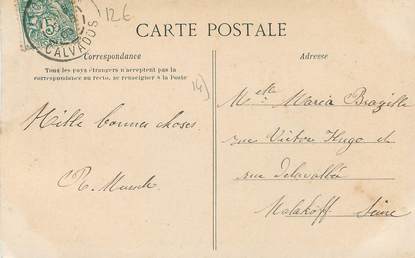 126
5
CALVADOS
CARTE POSTALE
Correspondance
Adresse
Tous les pays étrangers n'acceptent pas la
correspondance au recto, se renseigner à la Poste
14)
Mille bonnes choses
R.
Melle Maria Brazille
rue Victor Hugo et
rue Delavallée
Malakoff Seine